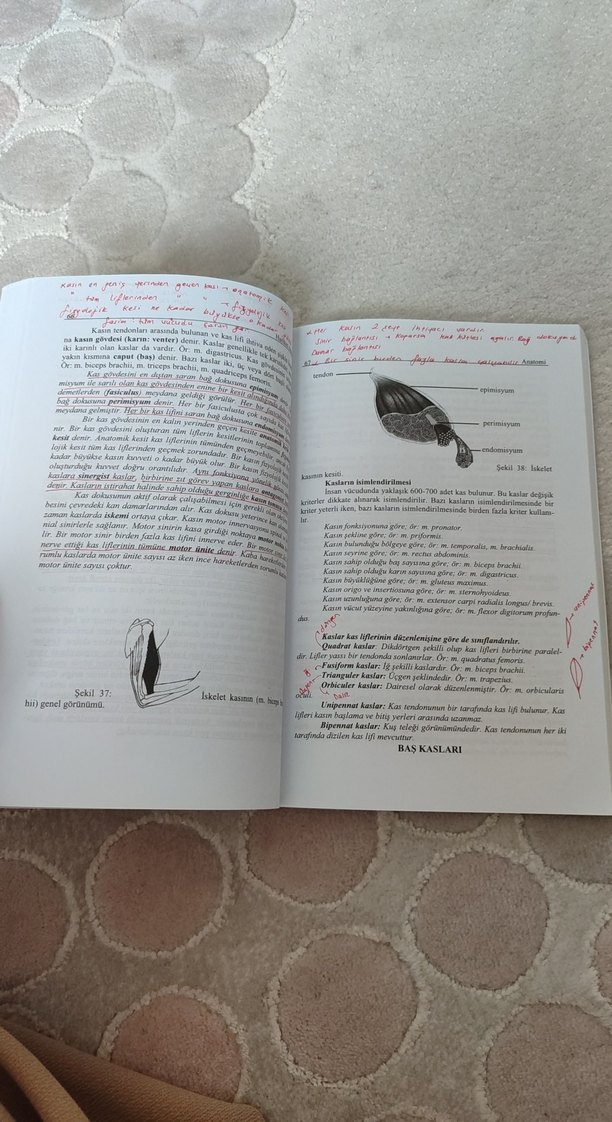 Kasın en geniş yerinden geçen kesi → anatomik
" tüm liflerinden " " → fizyolojik
fizyolojik kesi ne kadar büyükse o kadar
tüm vücudu saran zar
Kasın tendonları arasında bulunan ve kas lifi ihtiva eden
na kasın gövdesi (karın: venter) denir. Kaslar genellikle tek
iki karınlı olan kaslar da vardır. Ör: m. digastricus. Kas gövdesinin
yakın kısmına caput (baş) denir. Bazı kaslar iki, üç veya
Ör: m. biceps brachii, m. triceps brachii, m. quadriceps femoris.
Kas gövdesini en dıştan saran bağ dokusuna epimisyum
misyum ile sarılı olan kas gövdesinden enine bir kesit alındığında
demetlerden (fasiculus) meydana geldiği görülür. Her bir
bağ dokusuna perimisyum denir. Her bir fasiculusta çok sayıda
meydana gelmiştir. Her bir kas lifini saran bağ dokusuna
Bir kas gövdesinin en kalın yerinden geçen kesite
nir. Bir kas gövdesini oluşturan tüm liflerin kesitlerinin
kesit denir. Anatomik kesit kas liflerinin tümünden geçmeyebilir
lojik kesit tüm kas liflerinden geçmek zorundadır. Bir kasın
kadar büyükse kasın kuvveti o kadar büyük olur. Bir kasın
oluşturduğu kuvvet doğru orantılıdır. Aynı fonksiyona yönelik
kaslara sinergist kaslar, birbirine zıt görev yapan kaslara
denir. Kasların istirahat halinde sahip olduğu gerginliğe kasın
Kas dokusunun aktif olarak çalışabilmesi için gerekli olan
besini çevredeki kan damarlarından alır. Kas dokusu yeterince kan
zaman kaslarda iskemi ortaya çıkar. Kasın motor innervasyonu
nial sinirlerle sağlanır. Motor sinirin kasa girdiği noktaya motor
lir. Bir motor sinir birden fazla kas lifini innerve eder. Bir motor
nerve ettiği kas liflerinin tümüne motor ünite denir. Kaba
rumlu kaslarda motor ünite sayısı az iken ince hareketlerden sorumlu
motor ünite sayısı çoktur.
Şekil 37: İskelet kasının (m. biceps
hii) genel görünümü.
Her kasın 2 şeye ihtiyacı vardır.
Sinir bağlantısı → Koparsa kas kütlesi azalır. Bağ dokuya
Damar bağlantısı
Bir sinir birden fazla kasım
Anatomi
tendon
epimisyum
perimisyum
endomisyum
Şekil 38: İskelet
kasının kesiti.
Kasların isimlendirilmesi
İnsan vücudunda yaklaşık 600-700 adet kas bulunur. Bu kaslar değişik
kriterler dikkate alınarak isimlendirilir. Bazı kasların isimlendirilmesinde bir
kriter yeterli iken, bazı kasların isimlendirilmesinde birden fazla kriter kullanı-
lır.
Kasın fonksiyonuna göre; ör: m. pronator.
Kasın şekline göre; ör: m. priformis.
Kasın bulunduğu bölgeye göre; ör: m. temporalis, m. brachialis.
Kasın seyrine göre; ör: m. rectus abdominis.
Kasın sahip olduğu baş sayısına göre; ör: m. biceps brachii.
Kasın sahip olduğu karın sayısına göre; ör: m. digastricus.
Kasın büyüklüğüne göre; ör: m. gluteus maximus.
Kasın origo ve insertiosuna göre; ör: m. sternohyoideus.
Kasın uzunluğuna göre; ör: m. extensor carpi radialis longus/ brevis.
Kasın vücut yüzeyine yakınlığına göre; ör: m. flexor digitorum profun-
dus.
Kaslar kas liflerinin düzenlenişine göre de sınıflandırılır.
Quadrat kaslar: Dikdörtgen şekilli olup kas lifleri birbirine paralel-
dir. Lifler yassı bir tendonda sonlanırlar. Ör: m. quadratus femoris.
Fusiform kaslar: İğ şekilli kaslardır. Ör: m. biceps brachii.
Trianguler kaslar: Üçgen şeklindedir. Ör: m. trapezius.
Orbiculer kaslar: Dairesel olarak düzenlenmiştir. Ör: m. orbicularis
oculi.
Unipennat kaslar: Kas tendonunun bir tarafında kas lifi bulunur. Kas
lifleri kasın başlama ve bitiş yerleri arasında uzanmaz.
Bipennat kaslar: Kuş teleği görünümündedir. Kas tendonunun her iki
tarafında dizilen kas lifi mevcuttur.
unipennat
bipennat
BAŞ KASLARI